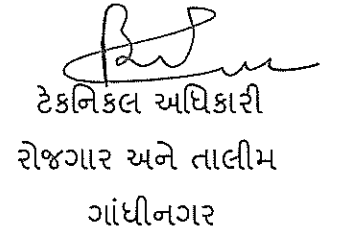 ટેકનિકલ અધિકારી
રોજગાર અને તાલીમ
ગાંધીનગર